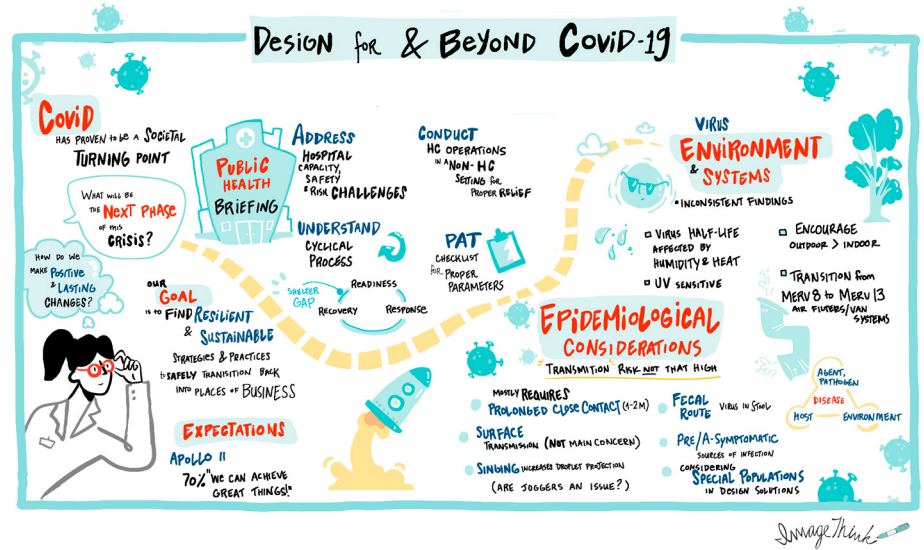 DESIGN for & BEYOND COVID-19
COVID
HAS PROVEN to BE A SOCIETAL
TURNING POINT
WHAT WILL BE
THE NEXT PHASE
OF THIS
CRISIS?
HOW DO WE
MAKE POSITIVE
& LASTING
CHANGES?
OUR
GOAL
IS to FIND RESILIENT
&
SUSTAINABLE
STRATEGIES & PRACTICES
to SAFELY TRANSITION BACK
INTO PLACES OF BUSINESS
EXPECTATIONS
APOLLO 11
70% "WE CAN ACHIEVE
GREAT THINGS!"
PUBLIC
HEALTH
BRIEFING
ADDRESS
HOSPITAL
CAPACITY,
SAFETY
& RISK CHALLENGES
CONDUCT
HC OPERATIONS
IN A NON-HC
SETTING for
PROPER RELIEF
UNDERSTAND
CYCLICAL
PROCESS
SHELTER
GAP
READINESS
RECOVERY
RESPONSE
PAT
CHECKLIST
FOR PROPER
PARAMETERS
VIRUS
ENVIRONMENT
& SYSTEMS
INCONSISTENT FINDINGS
VIRUS HALF-LIFE
AFFECTED BY
HUMIDITY & HEAT
UV SENSITIVE
ENCOURAGE
OUTDOOR > INDOOR
TRANSITION from
MERV 8 to MERV 13
AIR FILTERS/VAN
SYSTEMS
EPIDEMIOLOGICAL
CONSIDERATIONS
TRANSMITION RISK NOT THAT HIGH
MOSTLY REQUIRES
PROLONGED CLOSE CONTACT (1-2M)
SURFACE
TRANSMISSION (NOT MAIN CONCERN)
SINGING INCREASES DROPLET PROJECTION
(ARE JOGGERS AN ISSUE?)
FECAL
ROUTE VIRUS IN STOOL
PRE/A-SYMPTOMATIC
SOURCES OF INFECTION
CONSIDERING
SPECIAL POPULATIONS
IN DESIGN SOLUTIONS
AGENT,
PATHOGEN
DISEASE
HOST
ENVIRONMENT
ImageThink